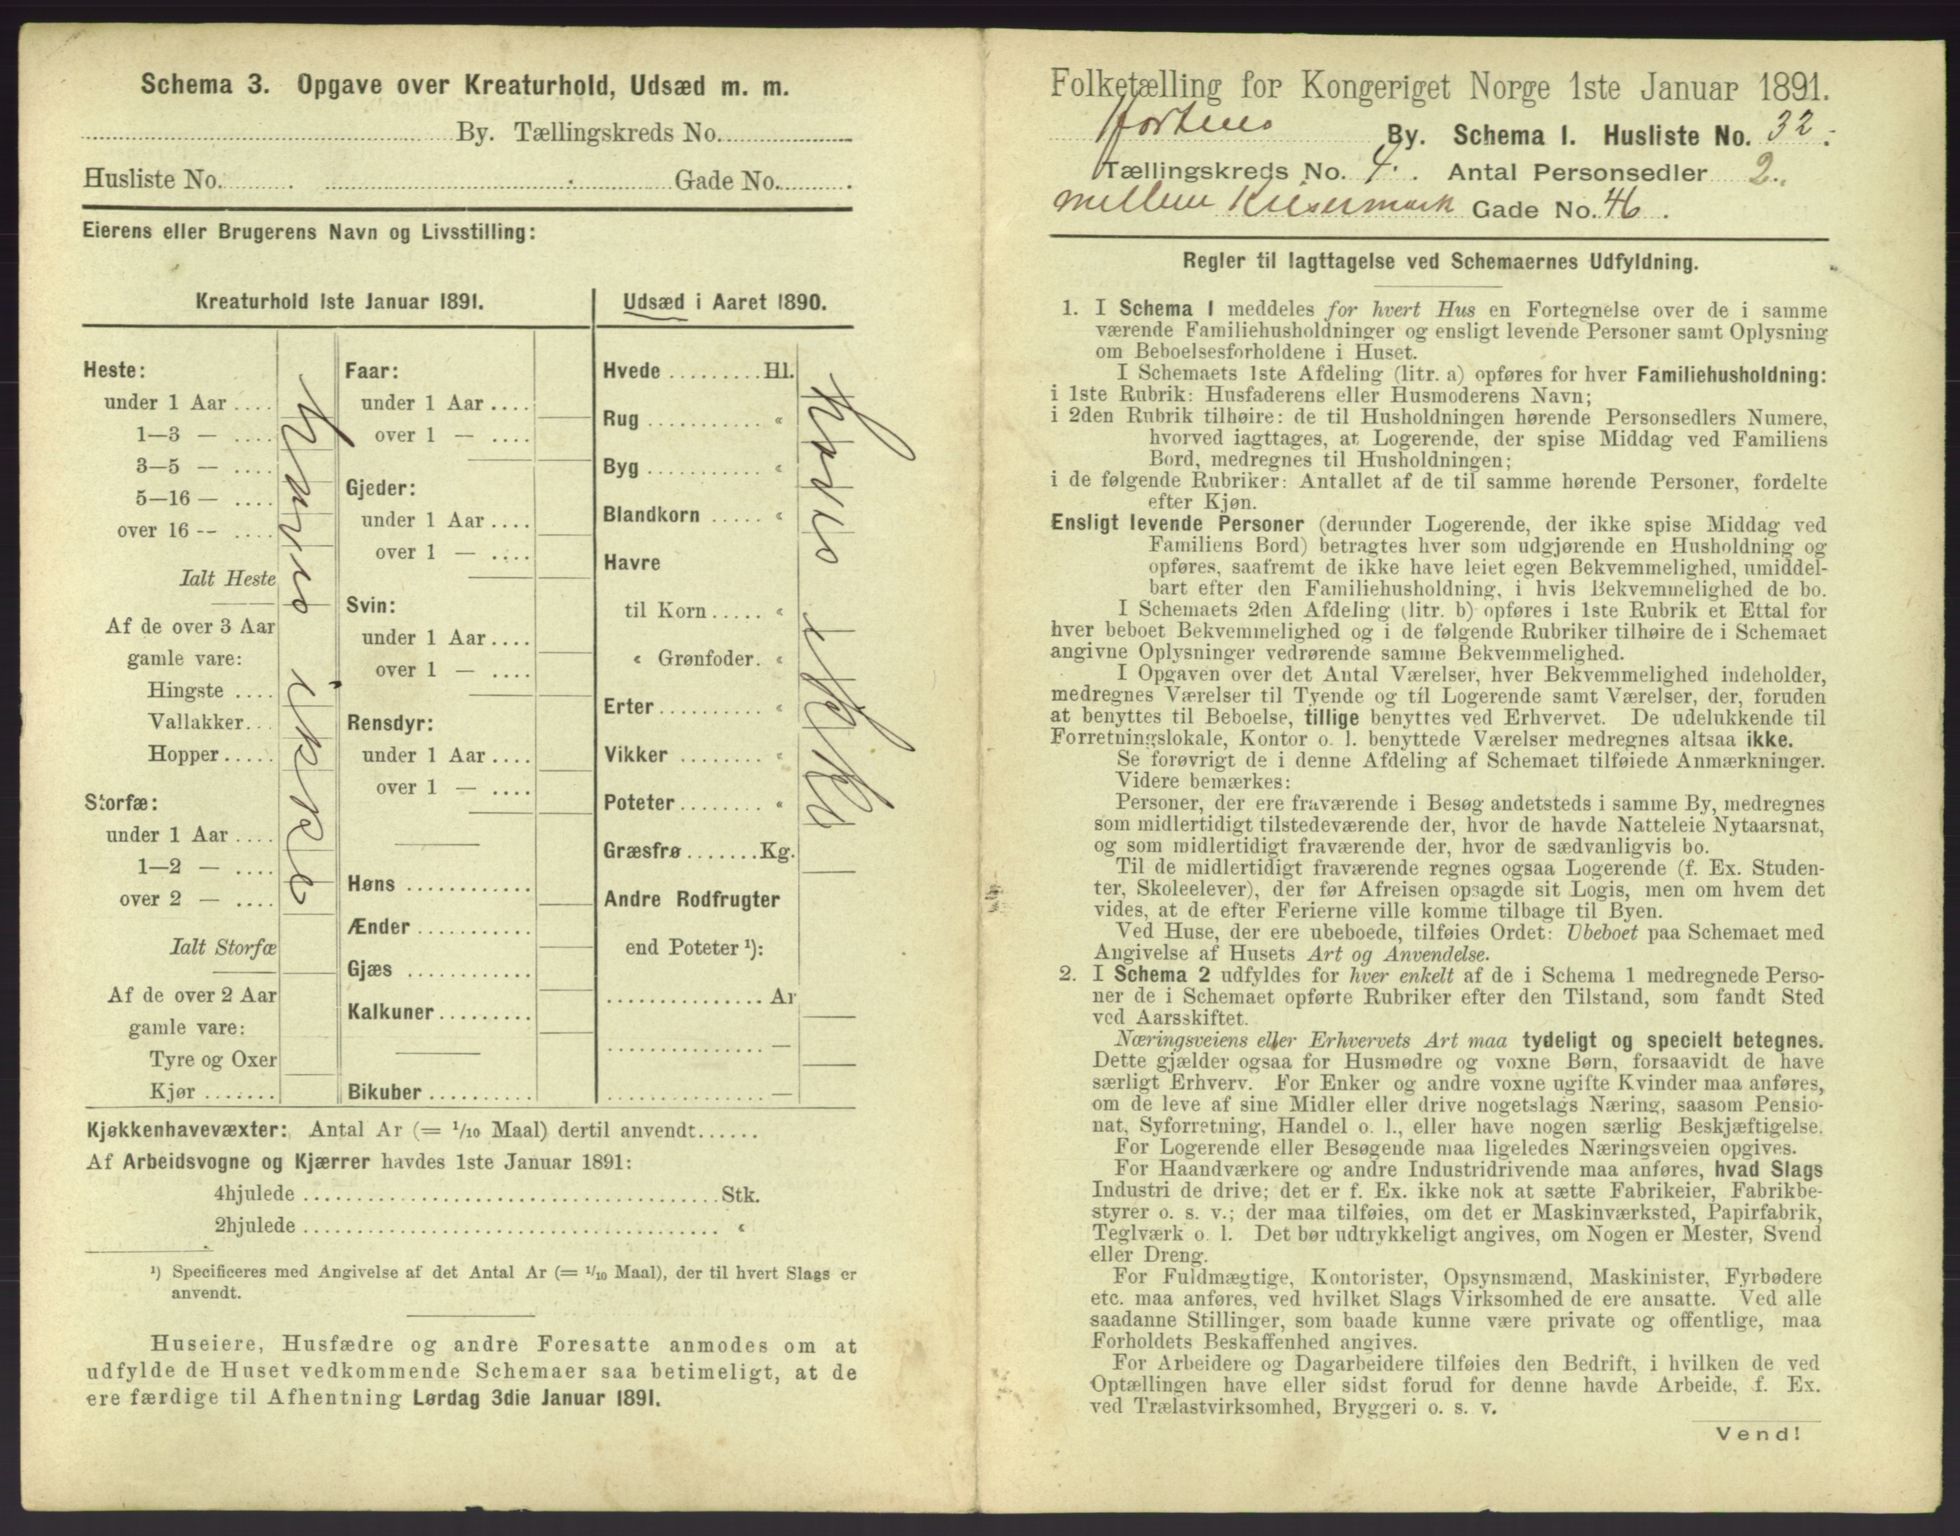 Schema 3. Opgave over Kreaturhold, Udsæd m. m.
By. Tællingskreds No.
Husliste No. Gade No.
Eierens eller Brugerens Navn og Livsstilling:
Kreaturhold 1ste Januar 1891.
Heste:
under 1 Aar
1—3 —
3—5 —
5—16 —
over 16 --
Ialt Heste
Af de over 3 Aar
gamle vare:
Hingste
Vallakker
Hopper
Storfæ:
under 1 Aar
1—2 —
over 2 —
Ialt Storfæ
Af de over 2 Aar
gamle vare:
Tyre og Oxer
Kjør
Haves ikke
Faar:
under 1 Aar
over 1 —
Gjeder:
under 1 Aar
over 1 —
Svin:
under 1 Aar
over 1 —
Rensdyr:
under 1 Aar
over 1 —
Høns
Ænder
Gjæs
Kalkuner
Bikuber
Udsæd i Aaret 1890.
Hvede Hl.
Rug «
Byg «
Blandkorn «
Havre
til Korn «
« Grønfoder «
Erter «
Vikker «
Poteter «
Græsfrø Kg.
Andre Rodfrugter
end Poteter ¹):
Ar
—
—
Haves ikke
Kjøkkenhavevæxter: Antal Ar (= 1/10 Maal) dertil anvendt
Af Arbeidsvogne og Kjærrer havdes 1ste Januar 1891:
4hjulede Stk.
2hjulede «
¹) Specificeres med Angivelse af det Antal Ar (= 1/10 Maal), der til hvert Slags er
anvendt.
Huseiere, Husfædre og andre Foresatte anmodes om at
udfylde de Huset vedkommende Schemaer saa betimeligt, at de
ere færdige til Afhentning Lørdag 3die Januar 1891.
Folketælling for Kongeriget Norge 1ste Januar 1891.
Hortens By. Schema I. Husliste No. 32.
Tællingskreds No. 4. Antal Personsedler 2.
mellem Gade No. 46.
Regler til Iagttagelse ved Schemaernes Udfyldning.
1. I Schema I meddeles for hvert Hus en Fortegnelse over de i samme
værende Familiehusholdninger og ensligt levende Personer samt Oplysning
om Beboelsesforholdene i Huset.
I Schemaets 1ste Afdeling (litr. a) opføres for hver Familiehusholdning:
i 1ste Rubrik: Husfaderens eller Husmoderens Navn;
i 2den Rubrik tilhøire: de til Husholdningen hørende Personsedlers Numere,
hvorved iagttages, at Logerende, der spise Middag ved Familiens
Bord, medregnes til Husholdningen;
i de følgende Rubriker: Antallet af de til samme hørende Personer, fordelte
efter Kjøn.
Ensligt levende Personer (derunder Logerende, der ikke spise Middag ved
Familiens Bord) betragtes hver som udgjørende en Husholdning og
opføres, saafremt de ikke have leiet egen Bekvemmelighed, umiddel-
bart efter den Familiehusholdning, i hvis Bekvemmelighed de bo.
I Schemaets 2den Afdeling (litr. b) opføres i 1ste Rubrik et Ettal for
hver beboet Bekvemmelighed og i de følgende Rubriker tilhøire de i Schemaet
angivne Oplysninger vedrørende samme Bekvemmelighed.
I Opgaven over det Antal Værelser, hver Bekvemmelighed indeholder,
medregnes Værelser til Tyende og til Logerende samt Værelser, der, foruden
at benyttes til Beboelse, tillige benyttes ved Erhvervet. De udelukkende til
Forretningslokale, Kontor o. l. benyttede Værelser medregnes altsaa ikke.
Se forøvrigt de i denne Afdeling af Schemaet tilføiede Anmærkninger.
Videre bemærkes:
Personer, der ere fraværende i Besøg andetsteds i samme By, medregnes
som midlertidigt tilstedeværende der, hvor de havde Natteleie Nytaarsnat,
og som midlertidigt fraværende der, hvor de sædvanligvis bo.
Til de midlertidigt fraværende regnes ogsaa Logerende (f. Ex. Studen-
ter, Skoleelever), der før Afreisen opsagde sit Logis, men om hvem det
vides, at de efter Ferierne ville komme tilbage til Byen.
Ved Huse, der ere ubeboede, tilføies Ordet: Ubeboet paa Schemaet med
Angivelse af Husets Art og Anvendelse.
2. I Schema 2 udfyldes for hver enkelt af de i Schema 1 medregnede Perso-
ner de i Schemaet opførte Rubriker efter den Tilstand, som fandt Sted
ved Aarsskiftet.
Næringsveiens eller Erhvervets Art maa tydeligt og specielt betegnes.
Dette gjælder ogsaa for Husmødre og voxne Børn, forsaavidt de have
særligt Erhverv. For Enker og andre voxne ugifte Kvinder maa anføres,
om de leve af sine Midler eller drive nogetslags Næring, saasom Pensio-
nat, Syforretning, Handel o. l., eller have nogen særlig Beskjæftigelse.
For Logerende eller Besøgende maa ligeledes Næringsveien opgives.
For Haandværkere og andre Industridrivende maa anføres, hvad Slags
Industri de drive; det er f. Ex. ikke nok at sætte Fabrikeier, Fabrikbe-
styrer o. s. v.; der maa tilføies, om det er Maskinværksted, Papirfabrik,
Teglværk o. l. Det bør udtrykkeligt angives, om Nogen er Mester, Svend
eller Dreng.
For Fuldmægtige, Kontorister, Opsynsmænd, Maskinister, Fyrbødere
etc. maa anføres, ved hvilket Slags Virksomhed de ere ansatte. Ved alle
saadanne Stillinger, som baade kunne være private og offentlige, maa
Forholdets Beskaffenhed angives.
For Arbeidere og Dagarbeidere tilføies den Bedrift, i hvilken de ved
Optællingen have eller sidst forud for denne havde Arbeide, f. Ex.
ved Trælastvirksomhed, Bryggeri o. s. v.
Vend!